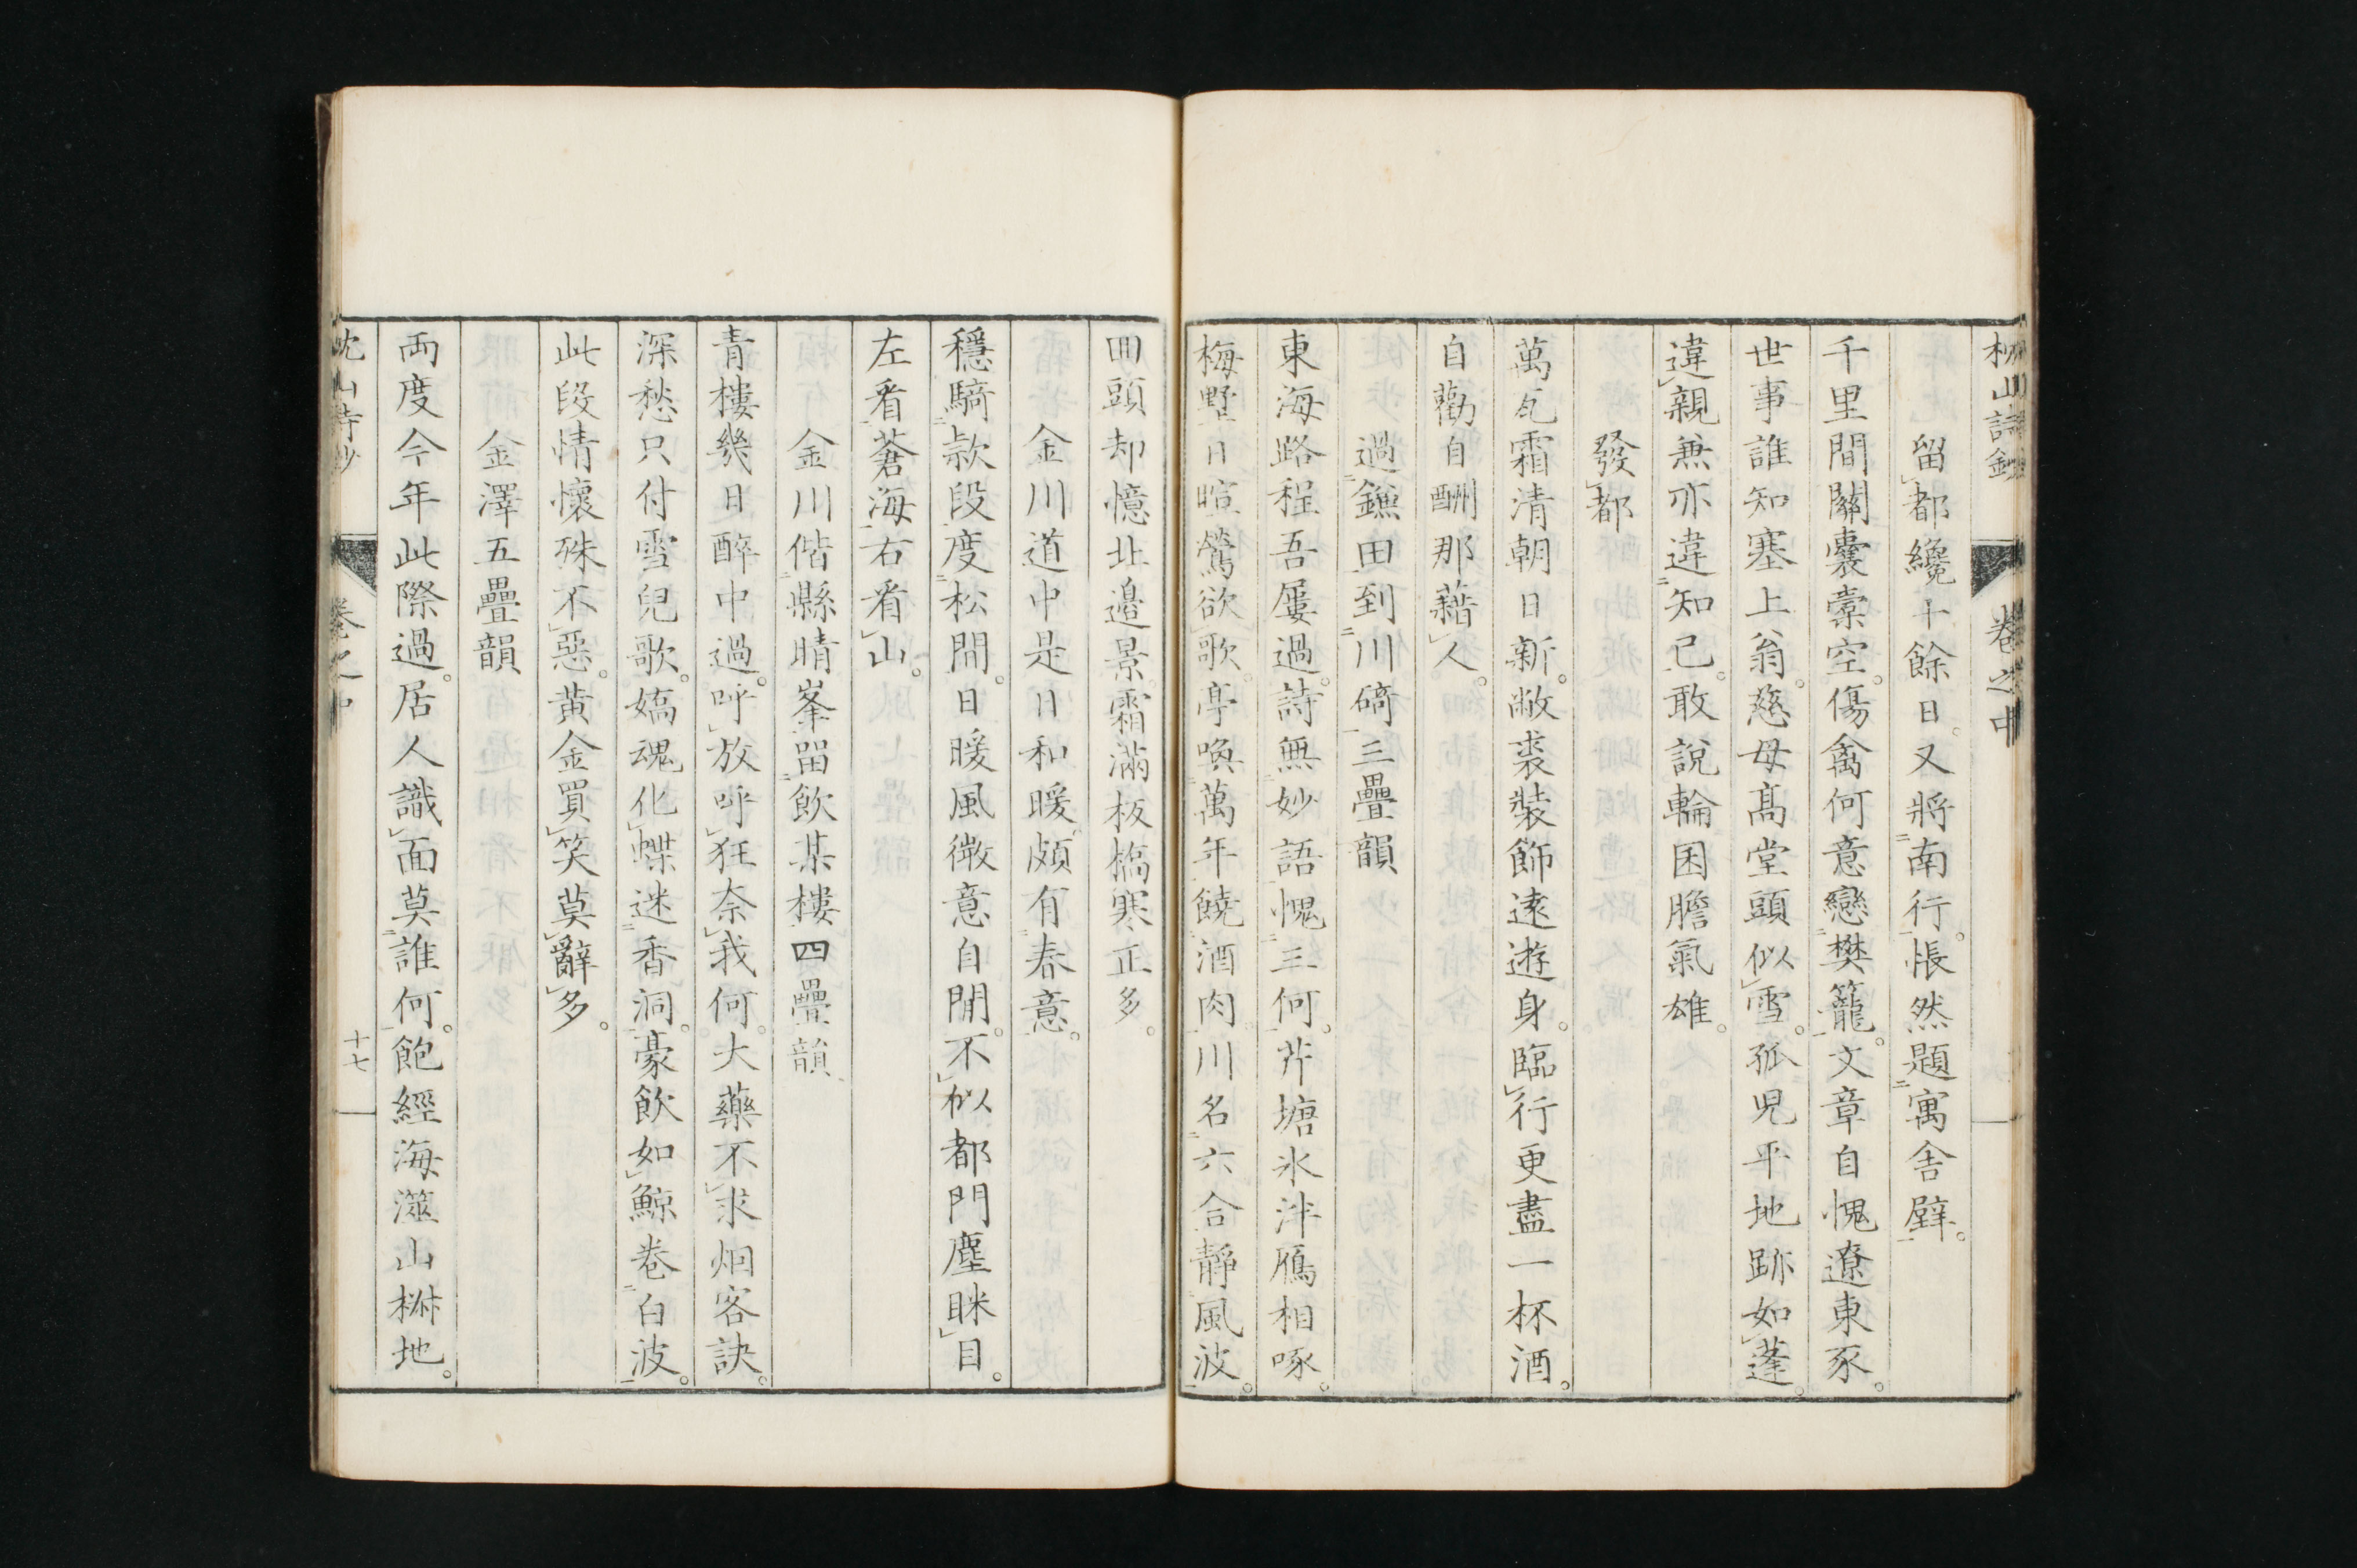 枕山詩鈔 卷之中
留都纔十餘日。又將南行。悵然題寓舍壁。
千里間關囊橐空。傷禽何意戀樊籠。文章自愧遼東豕。
世事誰知塞上翁。慈母髙堂頭似雪。孤児平地跡如蓬。
違親兼亦違知己。敢說輪囷膽氣雄。
發都
萬瓦霜清朝日新。敝裘裝飾遠遊身。臨行更盡一杯酒。
自勸自酬那藉人。
過鎌田到川碕三疊韻
東海路程吾屢過。詩無妙語愧三何。芹塘氷泮鴈相啄。
梅墅日暄鶯欲歌。亭喚萬年饒酒肉川名六合靜風波。
囬頭却憶北邉景霜滿板橋寒正多。
金川道中是日和暖頗有春意。
穩騎款段度松間。日暖風微意自閒。不似都門塵眯目。
左看蒼海右看山。
金川偕縣晴峯留飲某樓四疊韻
青樓幾日醉中過。呼放呼狂奈我何。大藥不求烟客訣。
深愁只付雪兒歌。嬌魂化蝶迷香洞。豪飲如鯨卷白波。
此段情懷殊不惡。黃金買笑莫辭多。
金澤五疊韻
両度今年此際過。居人識面莫誰何。飽經海澨山椒地。
枕山詩鈔 卷之中 十七